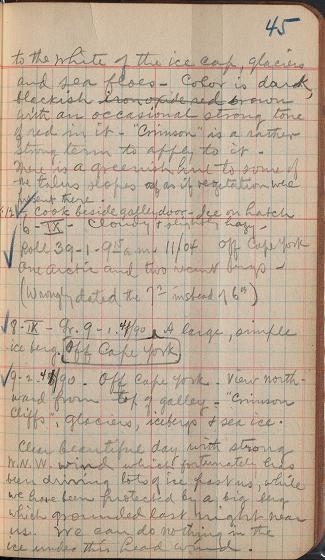 45
to the white of the ice cap, glaciers
and sea floes - Color is dark,
blackish iron oxide red brown
with an occasional strong tone
of red in it - "Crimson" is a rather
strong term to apply to it -
There is a greenish hue to some of
the talus slopes as if vegetation were
present there.
Cook beside galley door - Ice on hatch
6 - IX - Cloudy + slightly hazy -
Roll 39 - 1 - 9 15 a.m. 11/04 off Cape York
one arctic and two bergs -
(Wrongly dated the 7th instead of 6th)
8 - IX - Gr. 9 - 1. 4/90 - A large, simple
ice berg. Off Cape York
9 - 2. 4/90 - Off Cape York. View North-
ward from top of galley - "Crimson
Cliffs", glaciers, icebergs + sea ice.
Clear beautiful day with strong
N.N.W. wind which fortunately has
been driving lots of ice past us, while
we have been protected by a big berg
which grounded last night near
us. We can do nothing in the
ice under this head wind.